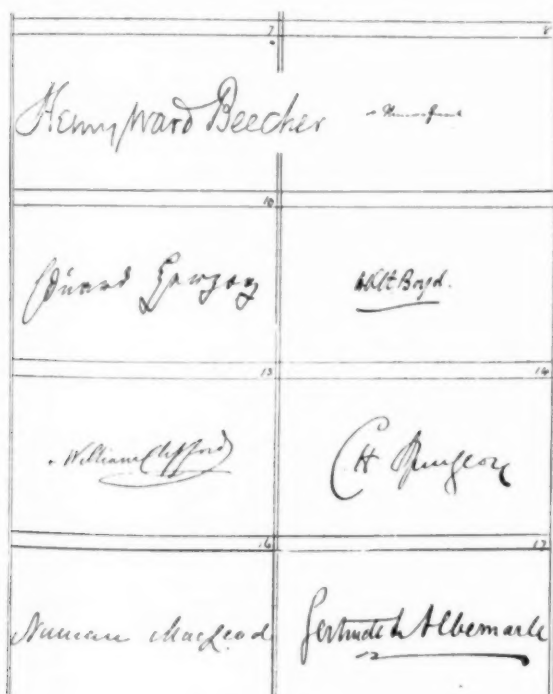 7 8
Henry Ward Beecher
10
Eduard Herzog
AKHB Boyd.
13 14
+ William Clifford
C H Spurgeon
16 17
Norman MacLeod
Gertrude Albemarle